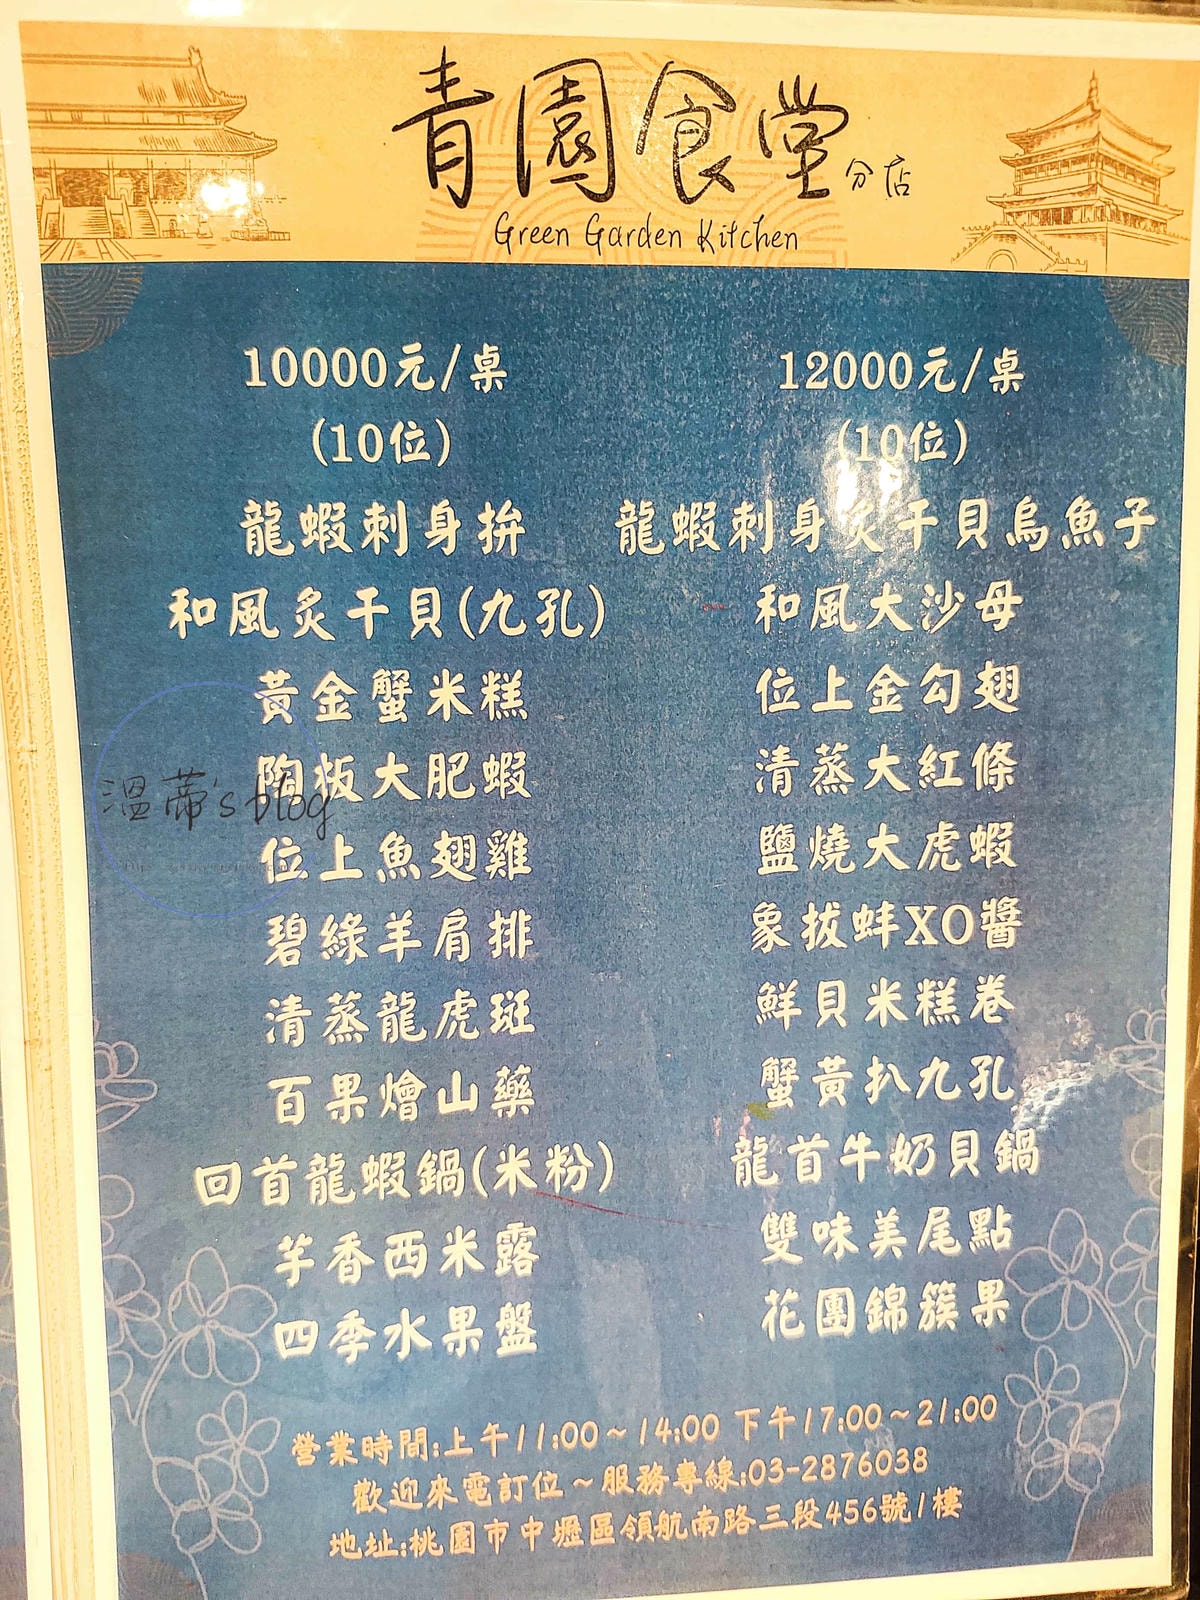 青園食堂 分店
Green Garden Kitchen
10000元/桌
(10位)
龍蝦刺身拚
和風炙干貝(九孔)
黃金蟹米糕
陶板大肥蝦
位上魚翅雞
碧綠羊肩排
清蒸龍虎斑
百果燴山藥
回首龍蝦鍋(米粉)
芋香西米露
四季水果盤
12000元/桌
(10位)
龍蝦刺身炙干貝烏魚子
和風大沙母
位上金勾翅
清蒸大紅條
鹽燒大虎蝦
象拔蚌XO醬
鮮貝米糕卷
蟹黃扒九孔
龍首牛奶貝鍋
雙味美尾點
花團錦簇果
營業時間:上午11:00~14:00 下午17:00~21:00
歡迎來電訂位~服務專線:03-2876038
地址:桃園市中壢區領航南路三段456號1樓
溫蒂's blog